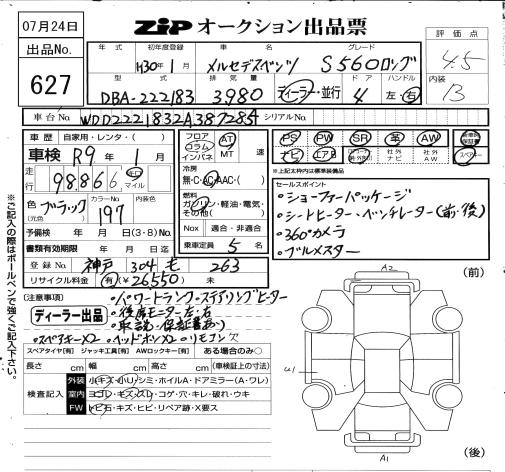 07月24日
ZIP オークション出品票
出品No.
627
年式 初年度登録 車名 グレード
H30年1月 メルセデスベンツ S560ロング
型式 排気量 ドア ハンドル
DBA-222183 3980 ディーラー・並行 4 左・右
評価点
4.5
内装
B
車台No WDD2221832A387284 シリアルNo.
車歴 自家用・レンタ・( )
車検 R9年1月
走行 98,866 キロ マイル
色(元色) ブラック カラーNo. 197 内装色
予備検 年 月 日(3・8)No.
書類有効期限 年 月 日迄
登録No. 神戸 304 も 263
リサイクル料金 (有)(¥26,550) 未
フロア コラム インパネ AT MT 速
冷房
無・C・AC・AAC・( )
燃料
ガソリン・軽油・電気・その他( )
Nox 適合・非適合
乗車定員 5 名
PS PW SR 革 AW
ナビ エアB 社外ナビ 社外AW スペアキー
※上記太枠内は標準装備品
セールスポイント
・ショーファーパッケージ
・シートヒーター・ベンチレーター(前・後)
・360°カメラ
・ブルメスター
(注意事項)
ディーラー出品
・パワートランク・ステアリングヒーター
・後席モニター左・右
・取説・保証書あり
・スペアキー×2 ・ヘッドホン×2 ・リモコン欠
スペアタイヤ[有] ジャッキ工具[有] AWロックキー[有] ある場合のみ〇
長さ cm 幅 cm 高さ cm (車検証上の寸法)
検査記入
外装 小キズ・小リ・シミ・ホイルA・ドアミラー(A・ワレ)
室内 ヨゴレ・キズ・スレ・コゲ・穴・キレ・破れ・ウキ
FW トビ石・キズ・ヒビ・リペア跡・X要ス
※ご記入の際はボールペンで強くご記入下さい。
A2
(前)
U1
A1
(後)